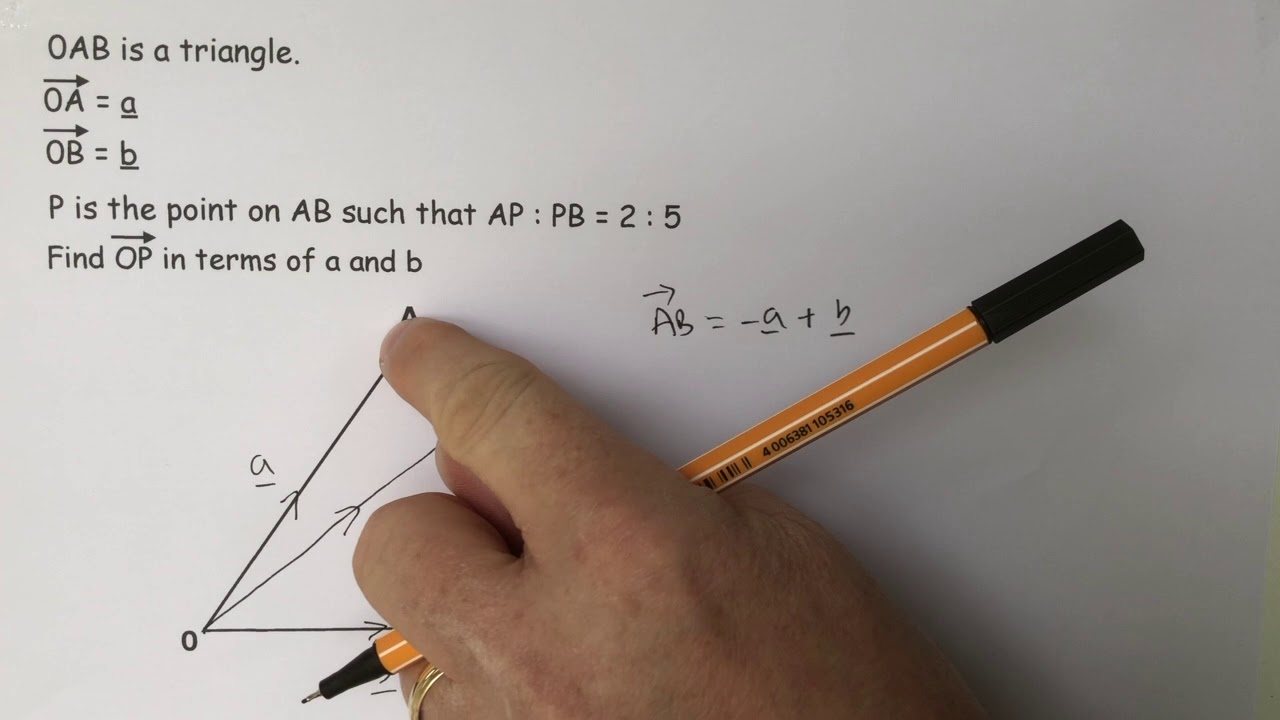 OAB is a triangle.
OA = a
OB = b
P is the point on AB such that AP : PB = 2 : 5
Find OP in terms of a and b
A
AB = -a + b
4 006381 105316
a
O